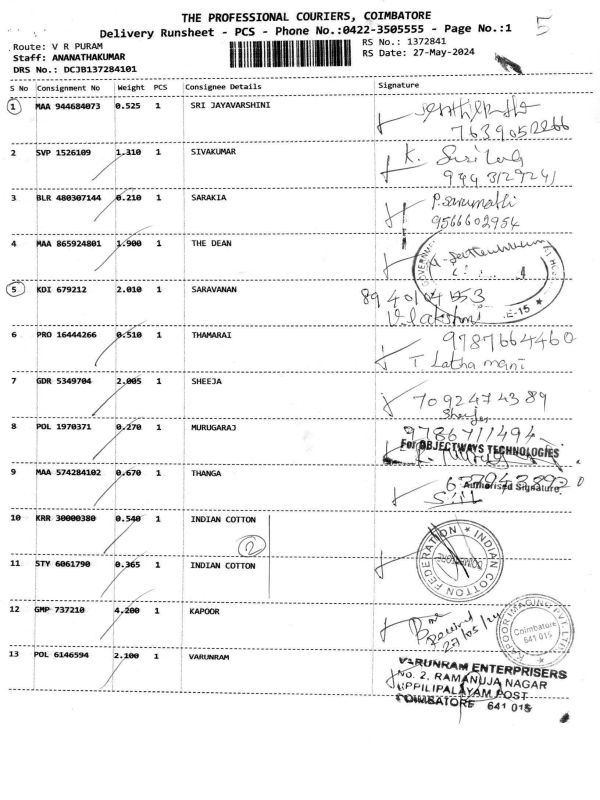 THE PROFESSIONAL COURIERS, COIMBATORE
5
Delivery Runsheet - PCS - Phone No.:0422-3505555 - Page No.:1
Route: V R PURAM
RS No.: 1372841
Staff: ANANATHAKUMAR
RS Date: 27-May-2024
DRS No.: DCJB137284101
S No Consignment No Weight PCS Consignee Details Signature
1 MAA 944684073 0.525 1 SRI JAYAVARSHINI
2 SVP 1526109 1.310 1 SIVAKUMAR
K.
3 BLR 480307144 0.210 1 SARAKIA
9566602954
4 MAA 865924801 1.900 1 THE DEAN
5 KDI 679212 2.010 1 SARAVANAN
E-15
6 PRO 16444266 0.510 1 THAMARAI
9787664460
T Latha mani
7 GDR 5349704 2.005 1 SHEEJA
7092474389
8 POL 1970371 0.270 1 MURUGARAJ
9786711494
For OBJECTWAYS TECHNOLOGIES
9 MAA 574284102 0.670 1 THANGA
Authorised Signature
10 KRR 30000380 0.540 1 INDIAN COTTON
2
INDIAN COTTON FEDERATION
COIMBATORE
11 STY 6061790 0.365 1 INDIAN COTTON
12 GMP 737210 4.200 1 KAPOOR
Received
27/05/24
KAPOOR IMAGING PVT. LTD.
Coimbatore
641 015
13 POL 6146594 2.100 1 VARUNRAM
VARUNRAM ENTERPRISERS
No. 2, RAMANUJA NAGAR
UPPILIPALAYAM POST
COIMBATORE 641 015